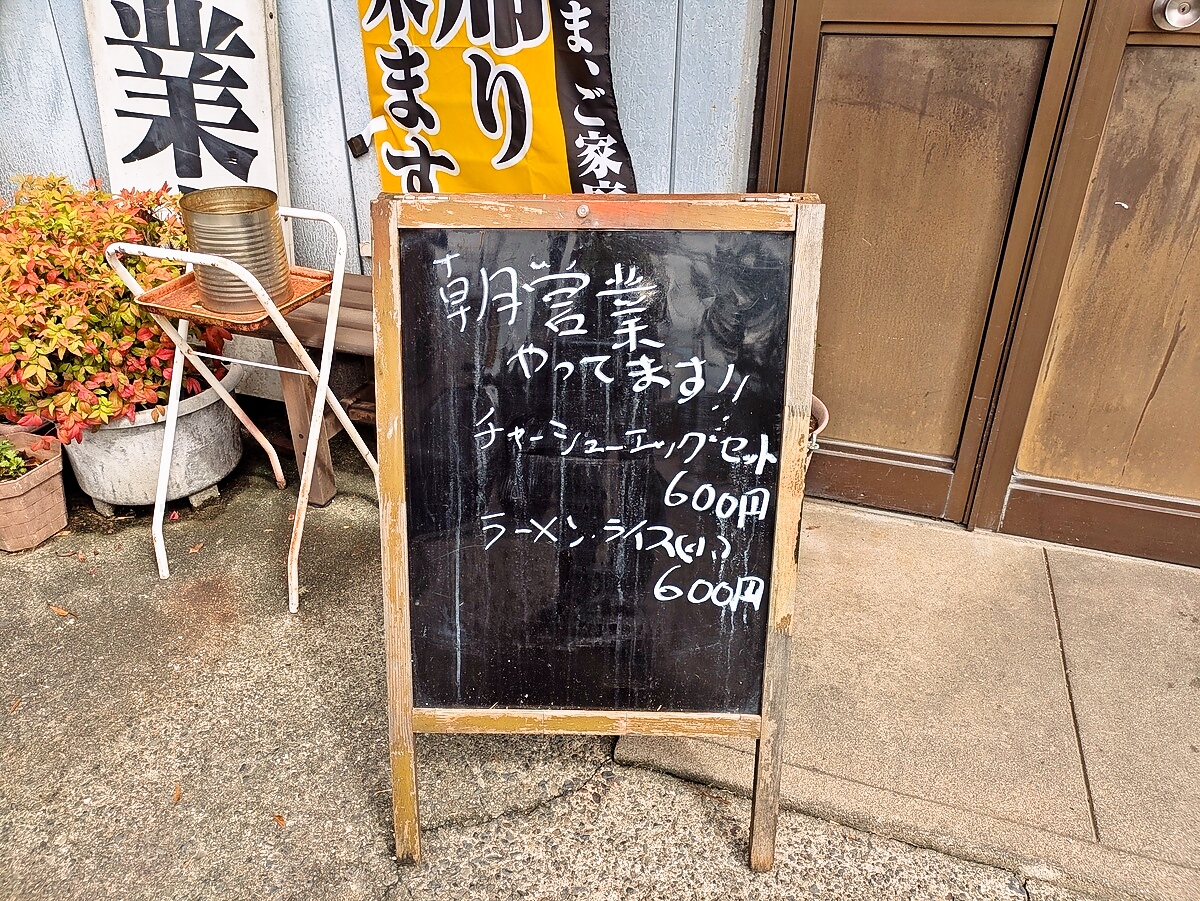 業
帰り
来ます
ま、ご家庭
朝営業
やってます!!
チャーシューエッグセット
600円
ラーメン・ライス(小)
600円